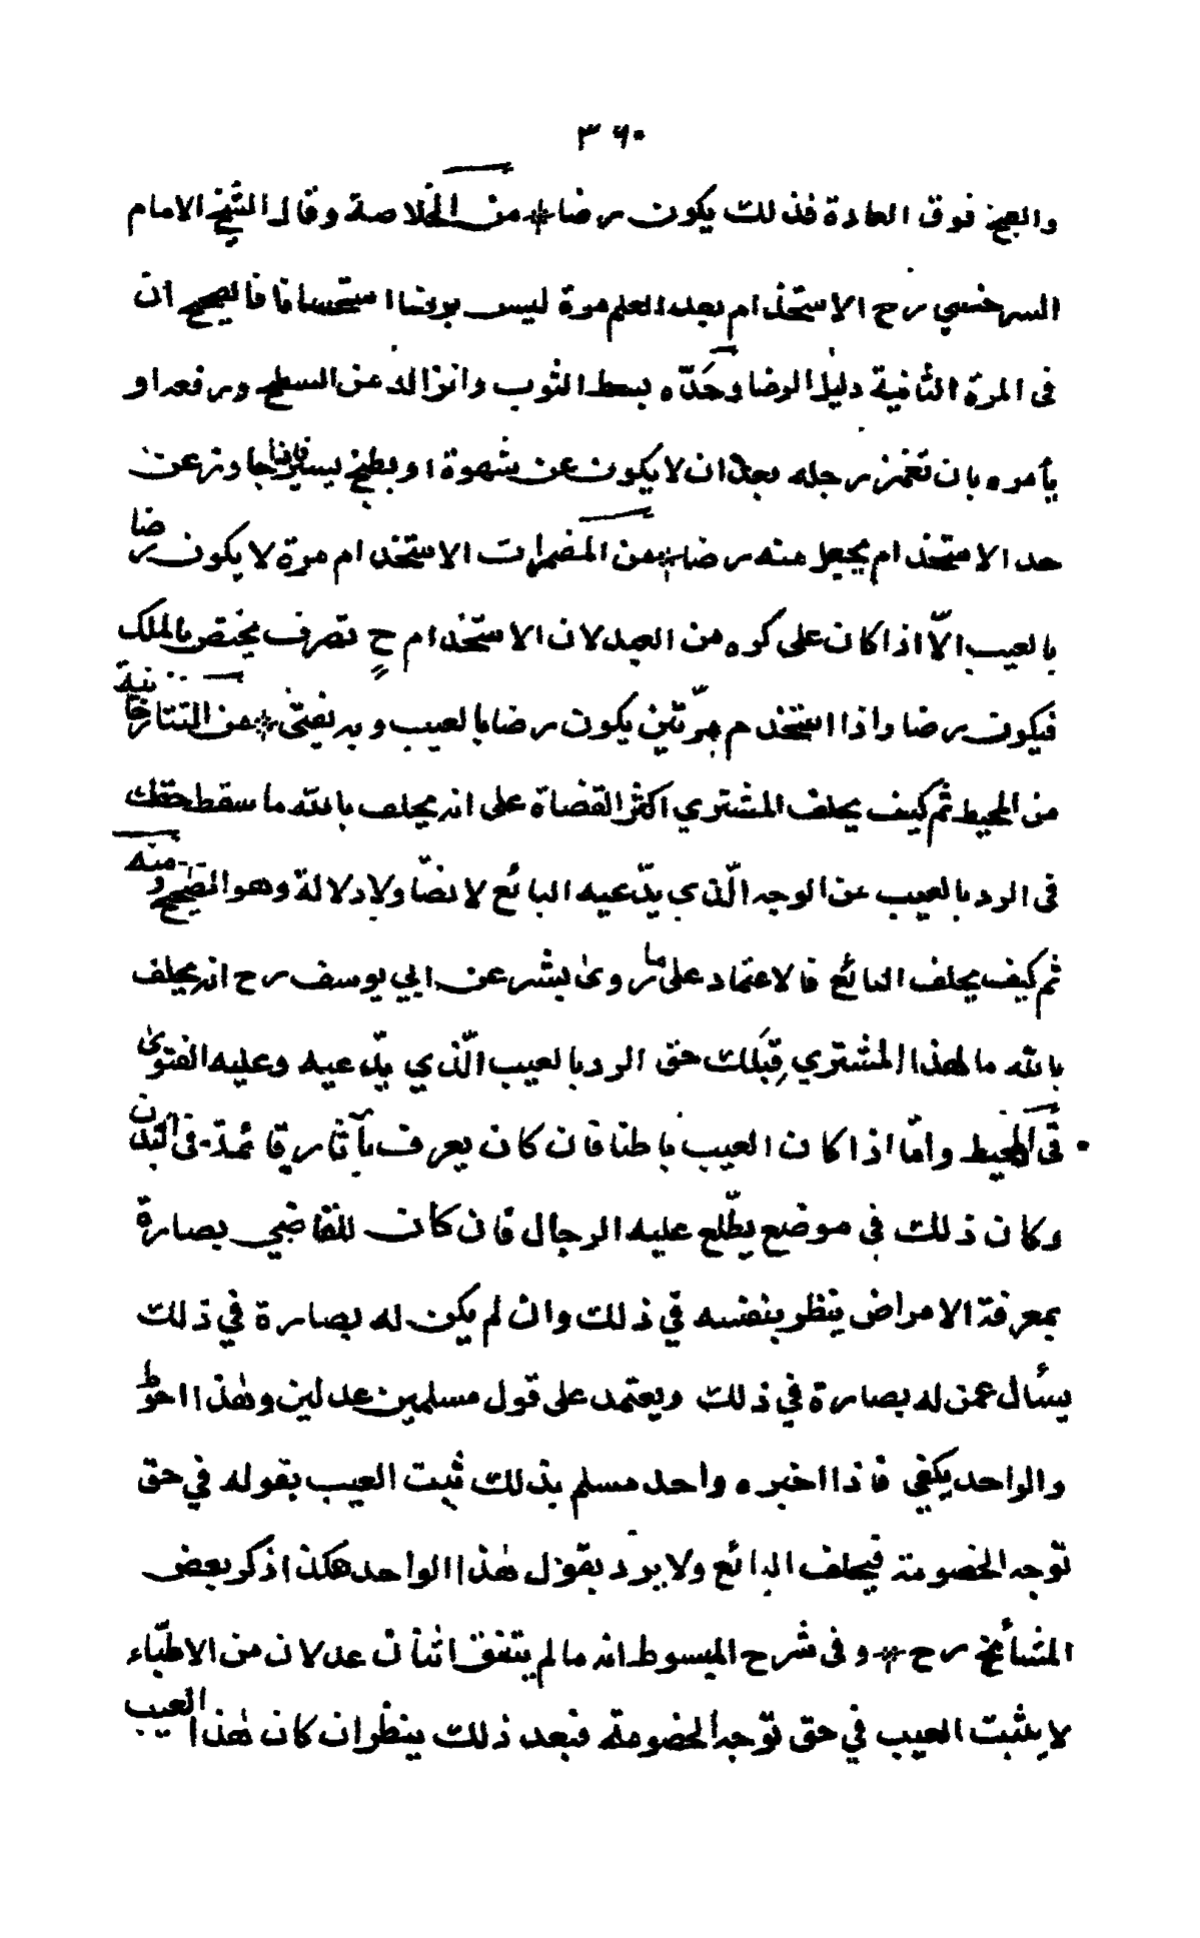 ٣٦٠
والبيخ فوق العادة فذلك يكون رضا * من الخلاصة وقال الشيخ الامام
السرخسي رح الاستخدام بعد العلم مرة ليس برضا استحسانا فالصحيح ان
فى المرّة الثانية دليل الرضا وحدّه بسط الثوب وانزاله عن السطح ورفعه او
يأمره بان تغمز رجله بعد ان لا يكون عن شهوة او بطبخ يسير فاذا جاوز عن
حد الاستخدام يجعل منه رضا * من المضمرات الاستخدام مرة لا يكون رضا
بالعيب الّا اذا كان على كره من العبد لان الاستخدام ح تصرف يختص بالملك
فيكون رضا واذا استخدم مرّتين يكون رضا بالعيب وبه يفتى * من التتارخانية
من المحيط ثم كيف يحلف المشتري اكثر القضاة على انه يحلف بالله ما سقط حقك
فى الرد بالعيب من الوجه الّذي يدّعيه البائع لا نصّا ولا دلالة وهو الصحيح ومنه
ثم كيف يحلف البائع فالاعتماد على ما روى بشر عن ابي يوسف رح انه يحلف
بالله ما لهذا المشتري قِبَلك حق الرد بالعيب الّذي يدّعيه وعليه الفتوى
فى المحيط وامّا اذا كان العيب باطنا فان كان يعرف بآثار قائمة فى البدن
وكان ذلك فى موضع يطّلع عليه الرجال فان كان للقاضي بصارة
بمعرفة الامراض ينظر بنفسه في ذلك وان لم يكن له بصارة في ذلك
يسأل عمن له بصارة في ذلك ويعتمد على قول مسلمين عدلين وهٰذا احوط
والواحد يكفي فاذا اخبره واحد مسلم بذلك ثبت العيب بقوله في حق
توجه الخصومة فيحلف البائع ولا يردّ بقول هٰذا الواحد هكذا ذكر بعض
المشأيخ رح * وفى شرح المبسوط انه ما لم يتفق اثنان عدلان من الاطبّاء
لا يثبت العيب في حق توجه الخصومة فبعد ذلك ينظر ان كان هٰذا العيب